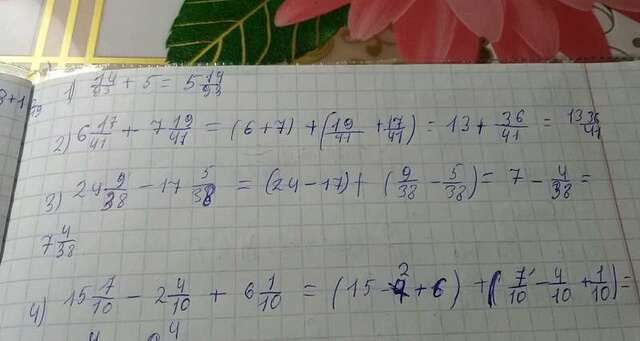 1) 14/93 + 5 = 5 14/93
2) 6 17/41 + 7 19/41 = (6+7) + (19/41 + 17/41) = 13 + 36/41 = 13 36/41
3) 24 9/38 - 17 5/38 = (24-17) + (9/38 - 5/38) = 7 - 4/38 =
7 4/38
4) 15 7/10 - 2 4/10 + 6 1/10 = (15 - 2 + 6) + (7/10 - 4/10 + 1/10) =